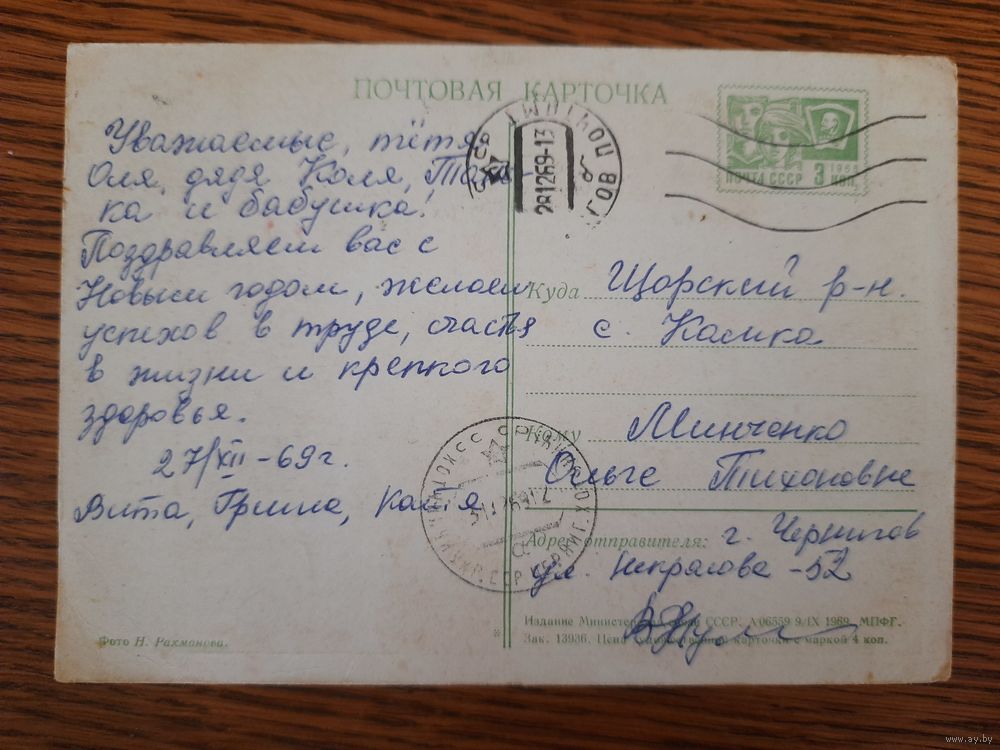 ПОЧТОВАЯ КАРТОЧКА
Уважаемые, тётя
Оля, дядя Коля,
ка и бабушка!
Поздравляем вас с
Новым годом, желаем
успехов в труде, счастья
в жизни и крепкого
здоровья.
27/XII-69г.
Вита, Гриша, Костя
Фото Н. Рахманова.
281269-13
ПОЧТА СССР 3 КОП.
Куда Щорский р-н.
с. Камка
Кому Минченко
Ольге Тихоновне
Адрес отправителя: г. Чернигов
ул. Некрасова -52
Издание Министерства связи СССР. А06559 9/IX 1969 МПФГ.
Зак. 13936. Цена карточки с маркой 4 коп.
www.ay.by